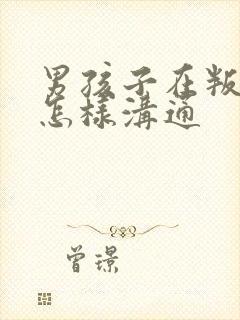 男孩子在叛
怎樣溝通
曾璟